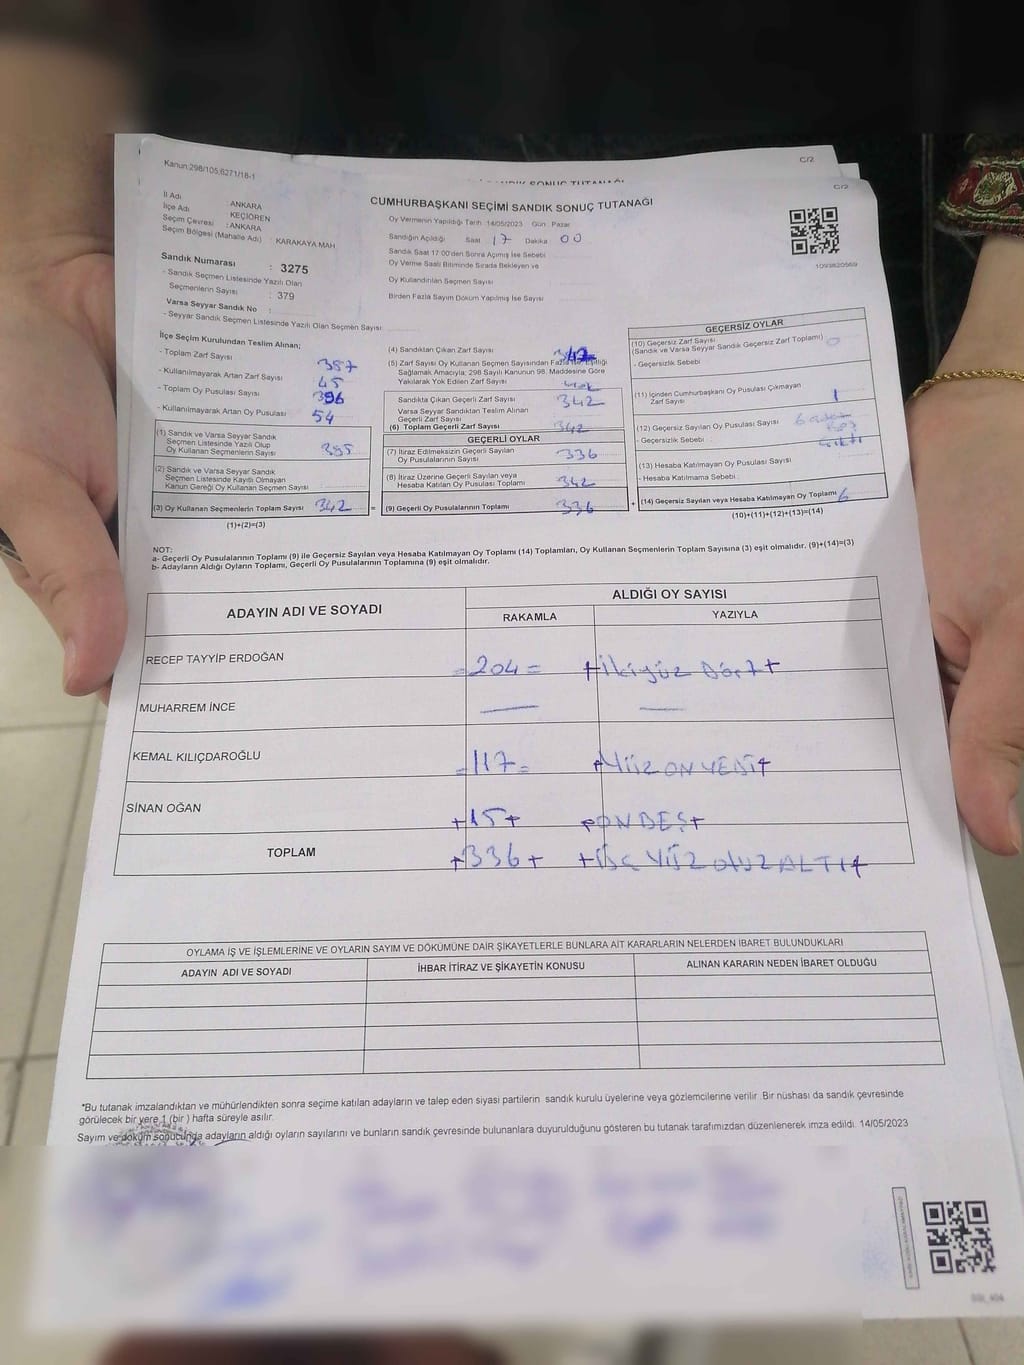 C/2
SANDIK SONUÇ TUTANAĞI
C/2
Kanun:298/105,6271/18-1
CUMHURBAŞKANI SEÇİMİ SANDIK SONUÇ TUTANAĞI
İl Adı : ANKARA
İlçe Adı : KEÇİÖREN
Seçim Çevresi : ANKARA
Seçim Bölgesi (Mahalle Adı) : KARAKAYA MAH
Sandık Numarası : 3275
- Sandık Seçmen Listesinde Yazılı Olan
Seçmenlerin Sayısı : 379
Varsa Seyyar Sandık No :
- Seyyar Sandık Seçmen Listesinde Yazılı Olan Seçmen Sayısı
Oy Vermenin Yapıldığı Tarih 14/05/2023 Gün : Pazar
Sandığın Açıldığı Saat 17 Dakika 00
Sandık Saat 17:00'den Sonra Açımış İse Sebebi
Oy Verme Saati Bitiminde Sırada Bekleyen ve
Oy Kullandırılan Seçmen Sayısı
Birden Fazla Sayım Döküm Yapılmış İse Sayısı
1093820569
İlçe Seçim Kurulundan Teslim Alınan;
- Toplam Zarf Sayısı 387
- Kullanılmayarak Artan Zarf Sayısı 45
- Toplam Oy Pusulası Sayısı 396
- Kullanılmayarak Artan Oy Pusulası 54
(1) Sandık ve Varsa Seyyar Sandık
Seçmen Listesinde Yazılı Olup
Oy Kullanan Seçmenlerin Sayısı
(2) Sandık ve Varsa Seyyar Sandık
Seçmen Listesinde Kayıtlı Olmayan
Kanun Gereği Oy Kullanan Seçmen Sayısı
(3) Oy Kullanan Seçmenlerin Toplam Sayısı 342 =
(1)+(2)=(3)
(4) Sandıktan Çıkan Zarf Sayısı 342
(5) Zarf Sayısı Oy Kullanan Seçmen Sayısından Fazla İse, Eşitliği
Sağlamak Amacıyla; 298 Sayılı Kanunun 98. Maddesine Göre
Yakılarak Yok Edilen Zarf Sayısı yok
Sandıkta Çıkan Geçerli Zarf Sayısı 342
Varsa Seyyar Sandıktan Teslim Alınan
Geçerli Zarf Sayısı
(6) Toplam Geçerli Zarf Sayısı 342
GEÇERLİ OYLAR
(7) İtiraz Edilmeksizin Geçerli Sayılan
Oy Pusulalarının Sayısı 336
(8) İtiraz Üzerine Geçerli Sayılan veya
Hesaba Katılan Oy Pusulası Toplamı 342
(9) Geçerli Oy Pusulalarının Toplamı 336 +
GEÇERSİZ OYLAR
(10) Geçersiz Zarf Sayısı
(Sandık ve Varsa Seyyar Sandık Geçersiz Zarf Toplamı) 0
- Geçersizlik Sebebi
(11) İçinden Cumhurbaşkanı Oy Pusulası Çıkmayan
Zarf Sayısı 1
(12) Geçersiz Sayılan Oy Pusulası Sayısı 6 adet
- Geçersizlik Sebebi :
(13) Hesaba Katılmayan Oy Pusulası Sayısı
- Hesaba Katılmama Sebebi
(14) Geçersiz Sayılan veya Hesaba Katılmayan Oy Toplamı 6
(10)+(11)+(12)+(13)=(14)
NOT:
a- Geçerli Oy Pusulalarının Toplamı (9) ile Geçersiz Sayılan veya Hesaba Katılmayan Oy Toplamı (14) Toplamları, Oy Kullanan Seçmenlerin Toplam Sayısına (3) eşit olmalıdır. (9)+(14)=(3)
b- Adayların Aldığı Oyların Toplamı, Geçerli Oy Pusulalarının Toplamına (9) eşit olmalıdır.
ADAYIN ADI VE SOYADI ALDIĞI OY SAYISI
RAKAMLA YAZIYLA
RECEP TAYYİP ERDOĞAN =204= +ikiyüz Dört+
MUHARREM İNCE — —
KEMAL KILIÇDAROĞLU =117= +YÜZ ONYEDİ+
SİNAN OĞAN +15+ +ONBEŞ+
TOPLAM +336+ +ÜÇ YÜZ OTUZ ALTI+
OYLAMA İŞ VE İŞLEMLERİNE VE OYLARIN SAYIM VE DÖKÜMÜNE DAİR ŞİKAYETLERLE BUNLARA AİT KARARLARIN NELERDEN İBARET BULUNDUKLARI
ADAYIN ADI VE SOYADI İHBAR İTİRAZ VE ŞİKAYETİN KONUSU ALINAN KARARIN NEDEN İBARET OLDUĞU
*Bu tutanak imzalandıktan ve mühürlendikten sonra seçime katılan adayların ve talep eden siyasi partilerin sandık kurulu üyelerine veya gözlemcilerine verilir .Bir nüshası da sandık çevresinde
görülecek bir yere 1 (bir ) hafta süreyle asılır.
Sayım ve döküm sonucunda adayların aldığı oyların sayılarını ve bunların sandık çevresinde bulunanlara duyurulduğunu gösteren bu tutanak tarafımızdan düzenlenerek imza edildi. 14/05/2023